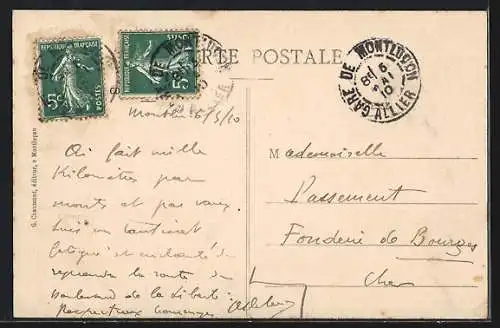 RÉPUBLIQUE FRANÇAISE
5c POSTES
CARTE POSTALE
GARE DE MONTLUÇON
8E 5 MAI 10
ALLIER
Montluçon 5/5/10
G. Chaumont, éditeur, à Montluçon
On fait mille
Kilomètres par
monts et par vaux.
Suis un tantinet
fatigué et enchanté de
reprendre la route du
Boulevard de la Liberté.
Respectueux hommages
Mademoiselle
Passement
Fonderie de Bourges
Cher